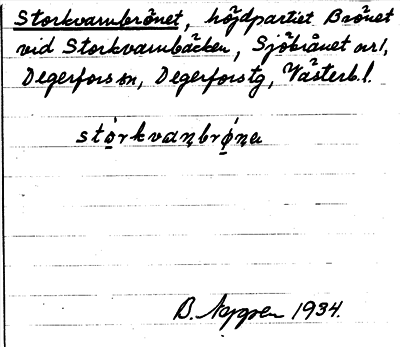 Storkvarnbrånet, höjdpartiet Brånet
vid Storkvarnbäcken, Sjöbrånet nr 1,
Degerfors sn, Degerfors tg, Västerb. l.
B. Nygren 1934.